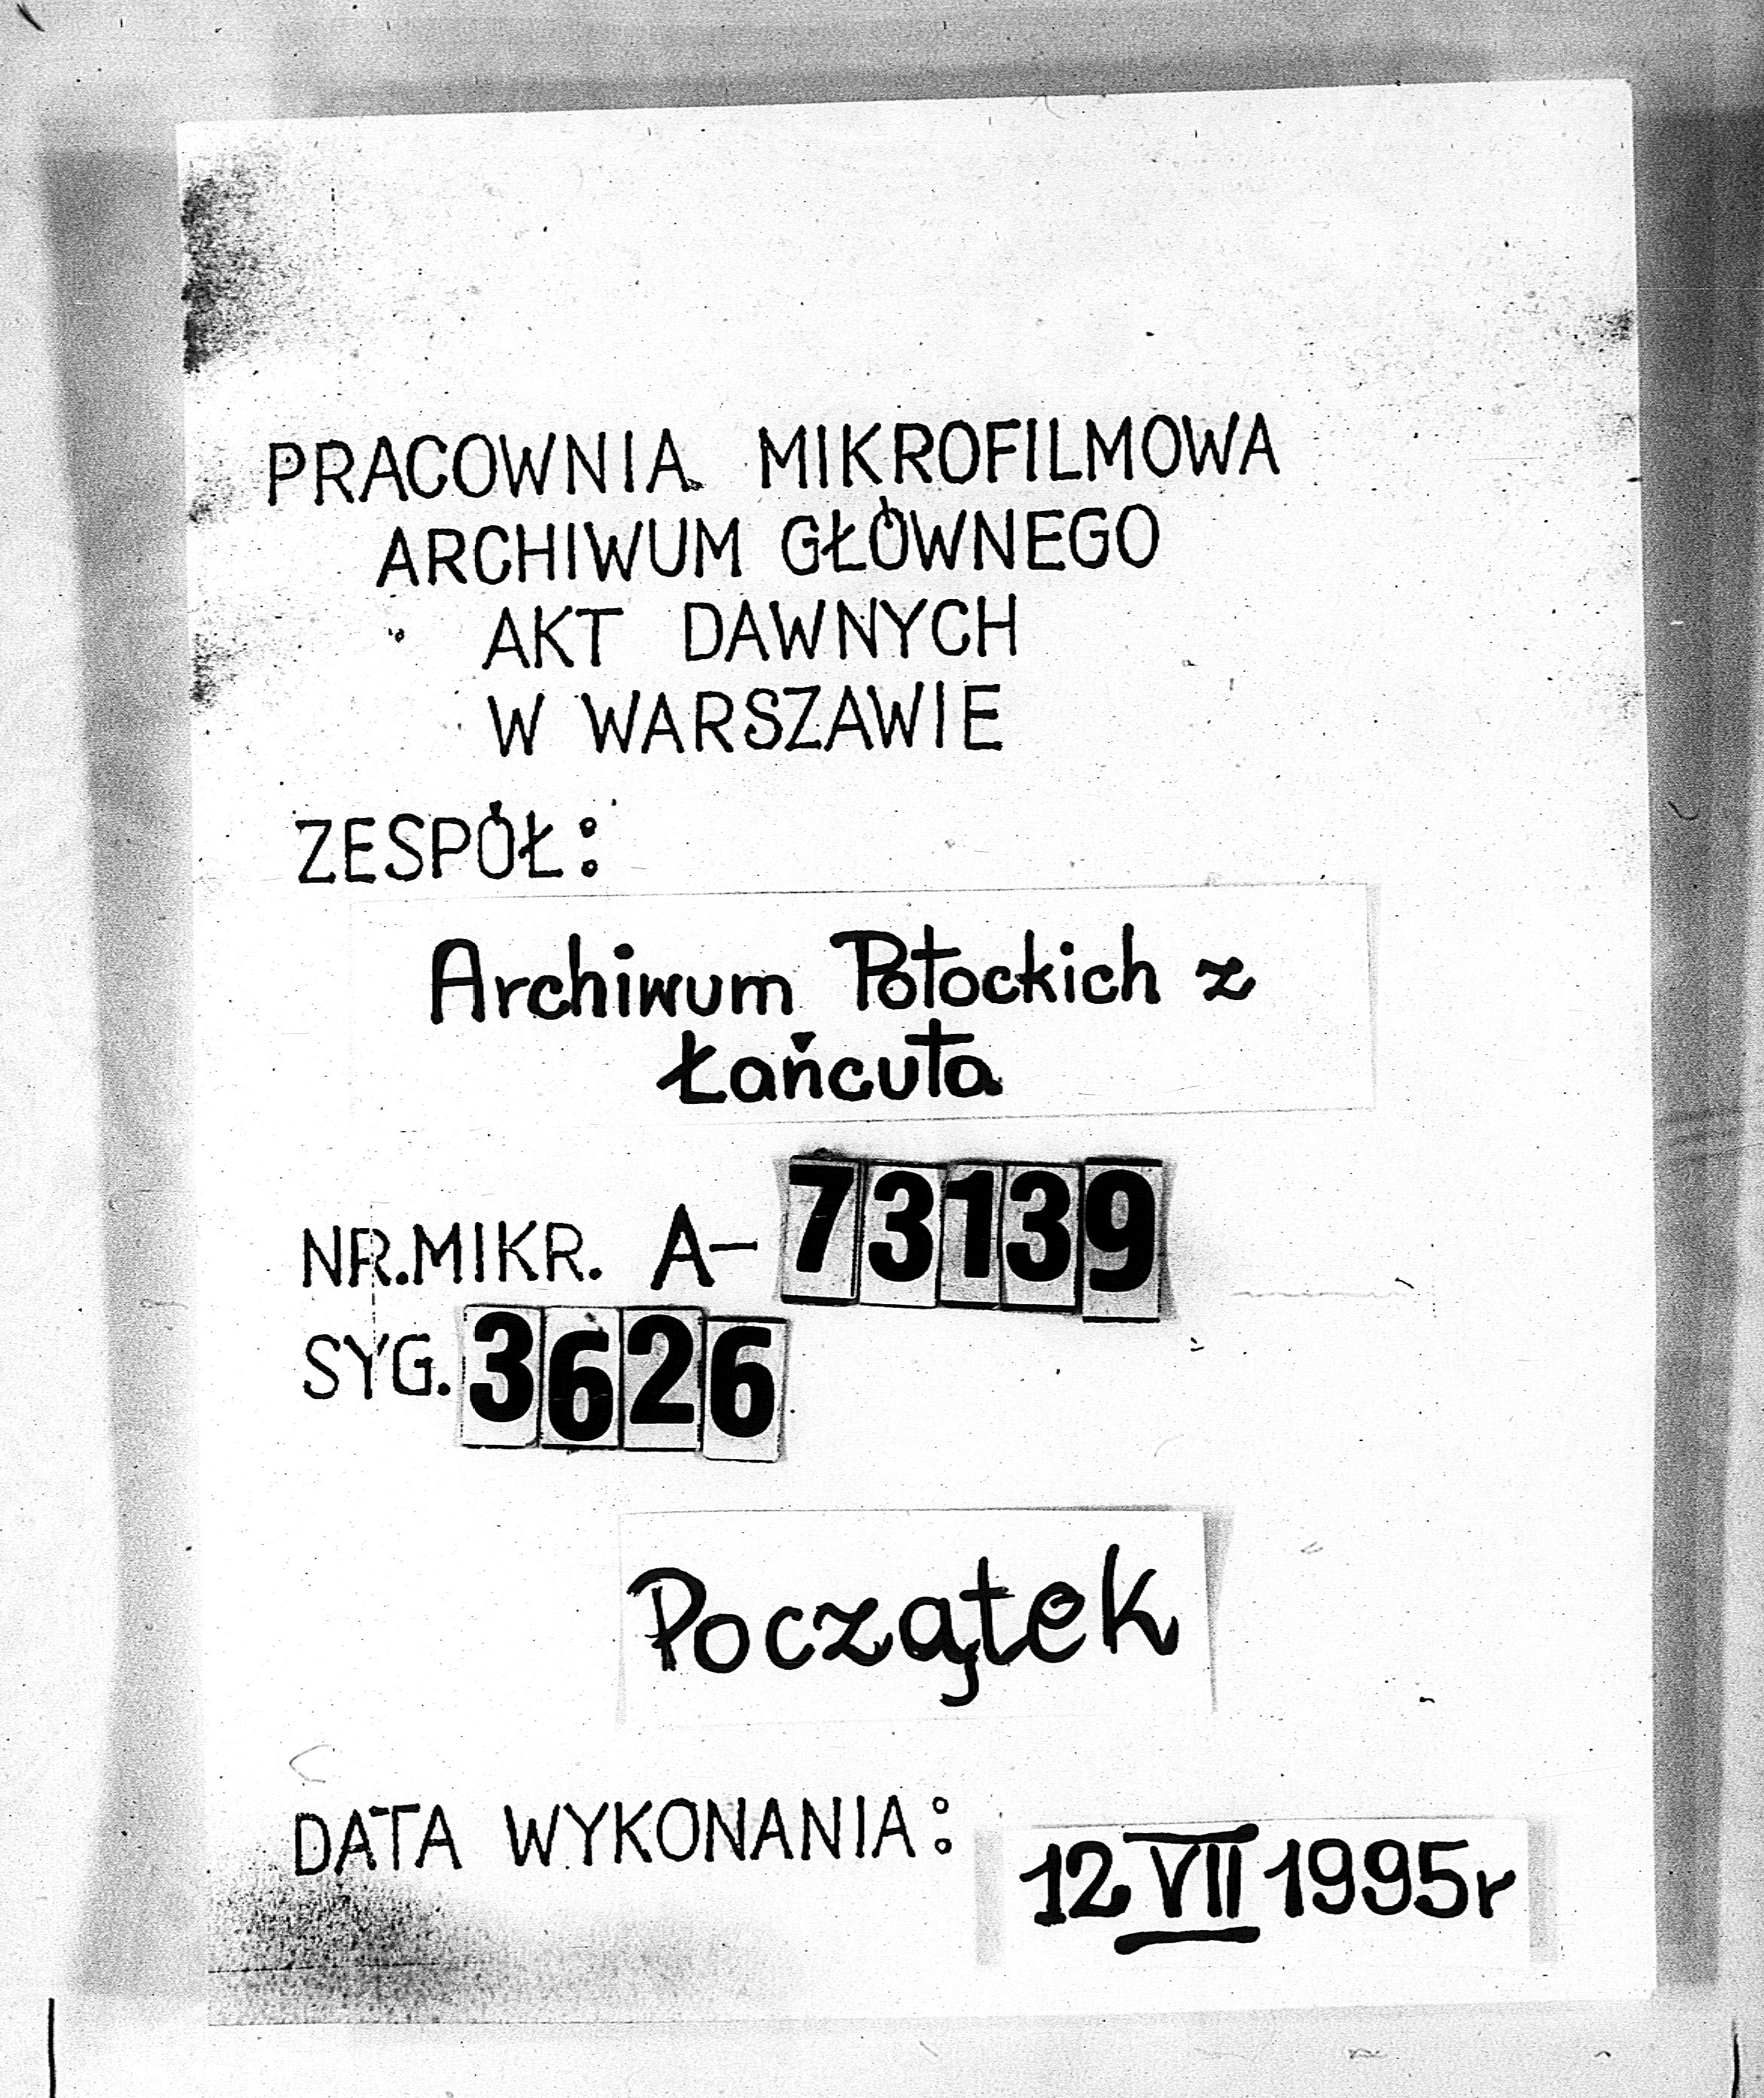 PRACOWNIA MIKROFILMOWA
ARCHIWUM GŁÓWNEGO
AKT DAWNYCH
W WARSZAWIE
ZESPÓŁ:
Archiwum Potockich z
Łańcuta
NR.MIKR. A-73139
SYG. 3626
Początek
DATA WYKONANIA: 12 VII 1995r